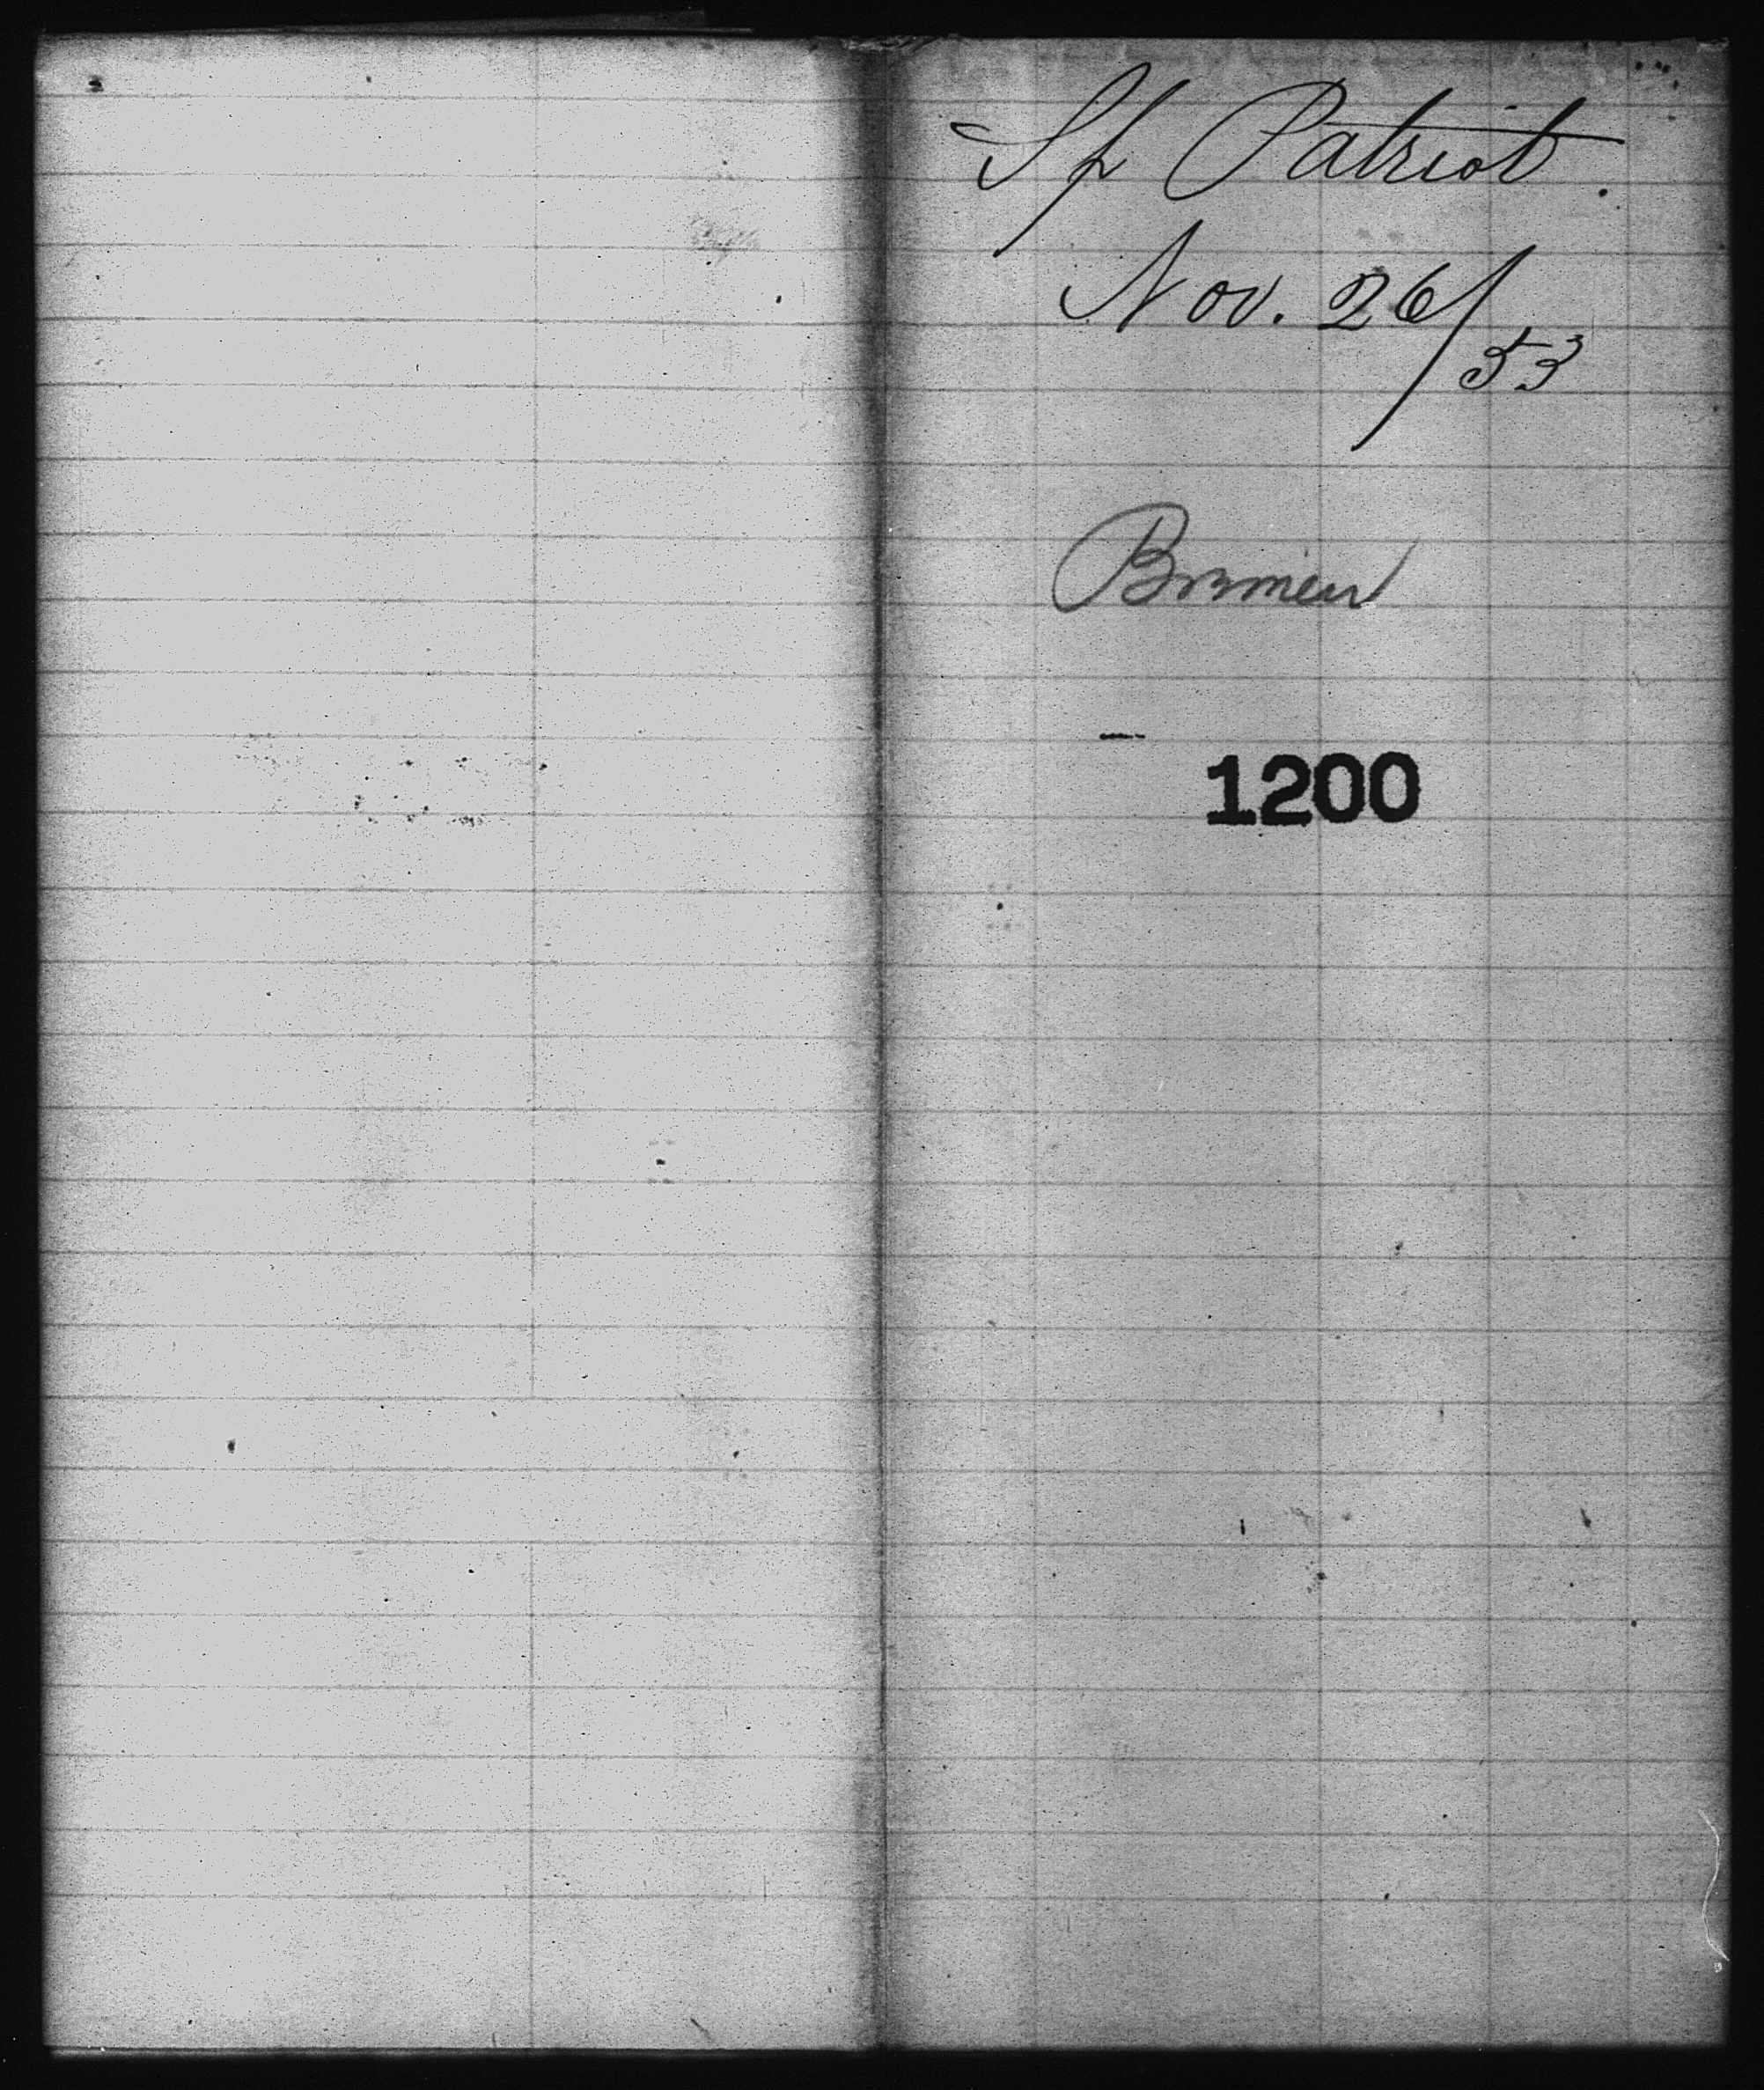 Sp Patriot.
Nov. 26/53
Bremen
1200